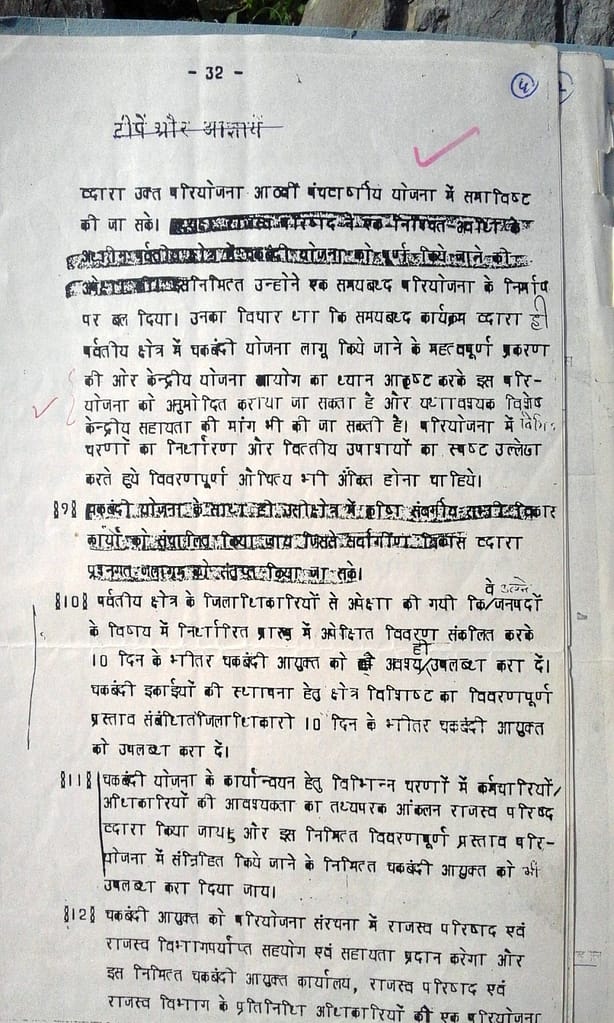 - 32 -
४
टीपें और आज्ञायें
व्दारा उक्त परियोजना आठवीं पंचवार्षीय योजना में समाविष्ट
की जा सके। राजस्व परिषद ने एक निश्चित अवधि के
अधीन पर्वतीय क्षेत्र में चकबंदी योजना को पूर्ण किये जाने की
इसनिमित्त उन्होने एक समयबध्द परियोजना के निर्माण
पर बल दिया। उनका विचार था कि समयबध्द कार्यक्रम व्दारा ही
पर्वतीय क्षेत्र में चकबंदी योजना लागू किये जाने के महत्वपूर्ण प्रकरण
की ओर केन्द्रीय योजना आयोग का ध्यान आकृष्ट करके इस परि-
योजना को अनुमोदित कराया जा सकता है और यथावश्यक विशेष
केन्द्रीय सहायता की मांग भी की जा सकती है। परियोजना में
चरणों का निर्धारण और वित्तीय उपाशयों का स्पष्ट उल्लेख
करते हुये विवरणपूर्ण औचित्य भी अंकित होना चाहिये।
॥9॥ चकबंदी योजना के साथ ही उसीक्षेत्र में कृषि संवर्गीय विकास
कार्यो को संपादित किया जाय जिससे सर्वांगीण विकास व्दारा
प्रश्नगत जलागम को संतृप्त किया जा सके।
॥10॥ पर्वतीय क्षेत्र के जिलाधिकारियों से अपेक्षा की गयी कि/जनपदों
वे अपने
के विषय में निर्धारित प्रारूप में अपेक्षित विवरण संकलित करके
10 दिन के भीतर चकबंदी आयुक्त को अवश्य/उपलब्ध करा दें।
ही
चकबंदी इकाईयों की स्थापना हेतु क्षेत्र विशिष्ट का विवरणपूर्ण
प्रस्ताव संबंधित जिलाधिकारी 10 दिन के भीतर चकबंदी आयुक्त
को उपलब्ध करा दें।
॥11॥ चकबंदी योजना के कार्यान्वयन हेतु विभिान्न चरणों में कर्मचारियों/
अधिकारियों की आवश्यकता का तथ्यपरक आंकलन राजस्व परिषद
व्दारा किया जाय और इस निमित्त विवरणपूर्ण प्रस्ताव परि-
योजना में सन्निहित किये जाने के निमित्त चकबंदी आयुक्त को भी
उपलब्ध करा दिया जाय।
॥12॥ चकबंदी आयुक्त को परियोजना संरचना में राजस्व परिषद एवं
राजस्व विभागपर्याप्त सहयोग एवं सहायता प्रदान करेगा और
इस निमित्त चकबंदी आयुक्त कार्यालय, राजस्व परिषद एवं
राजस्व विभाग के प्रतिनिधि अधिकारियों की एक परियोजना